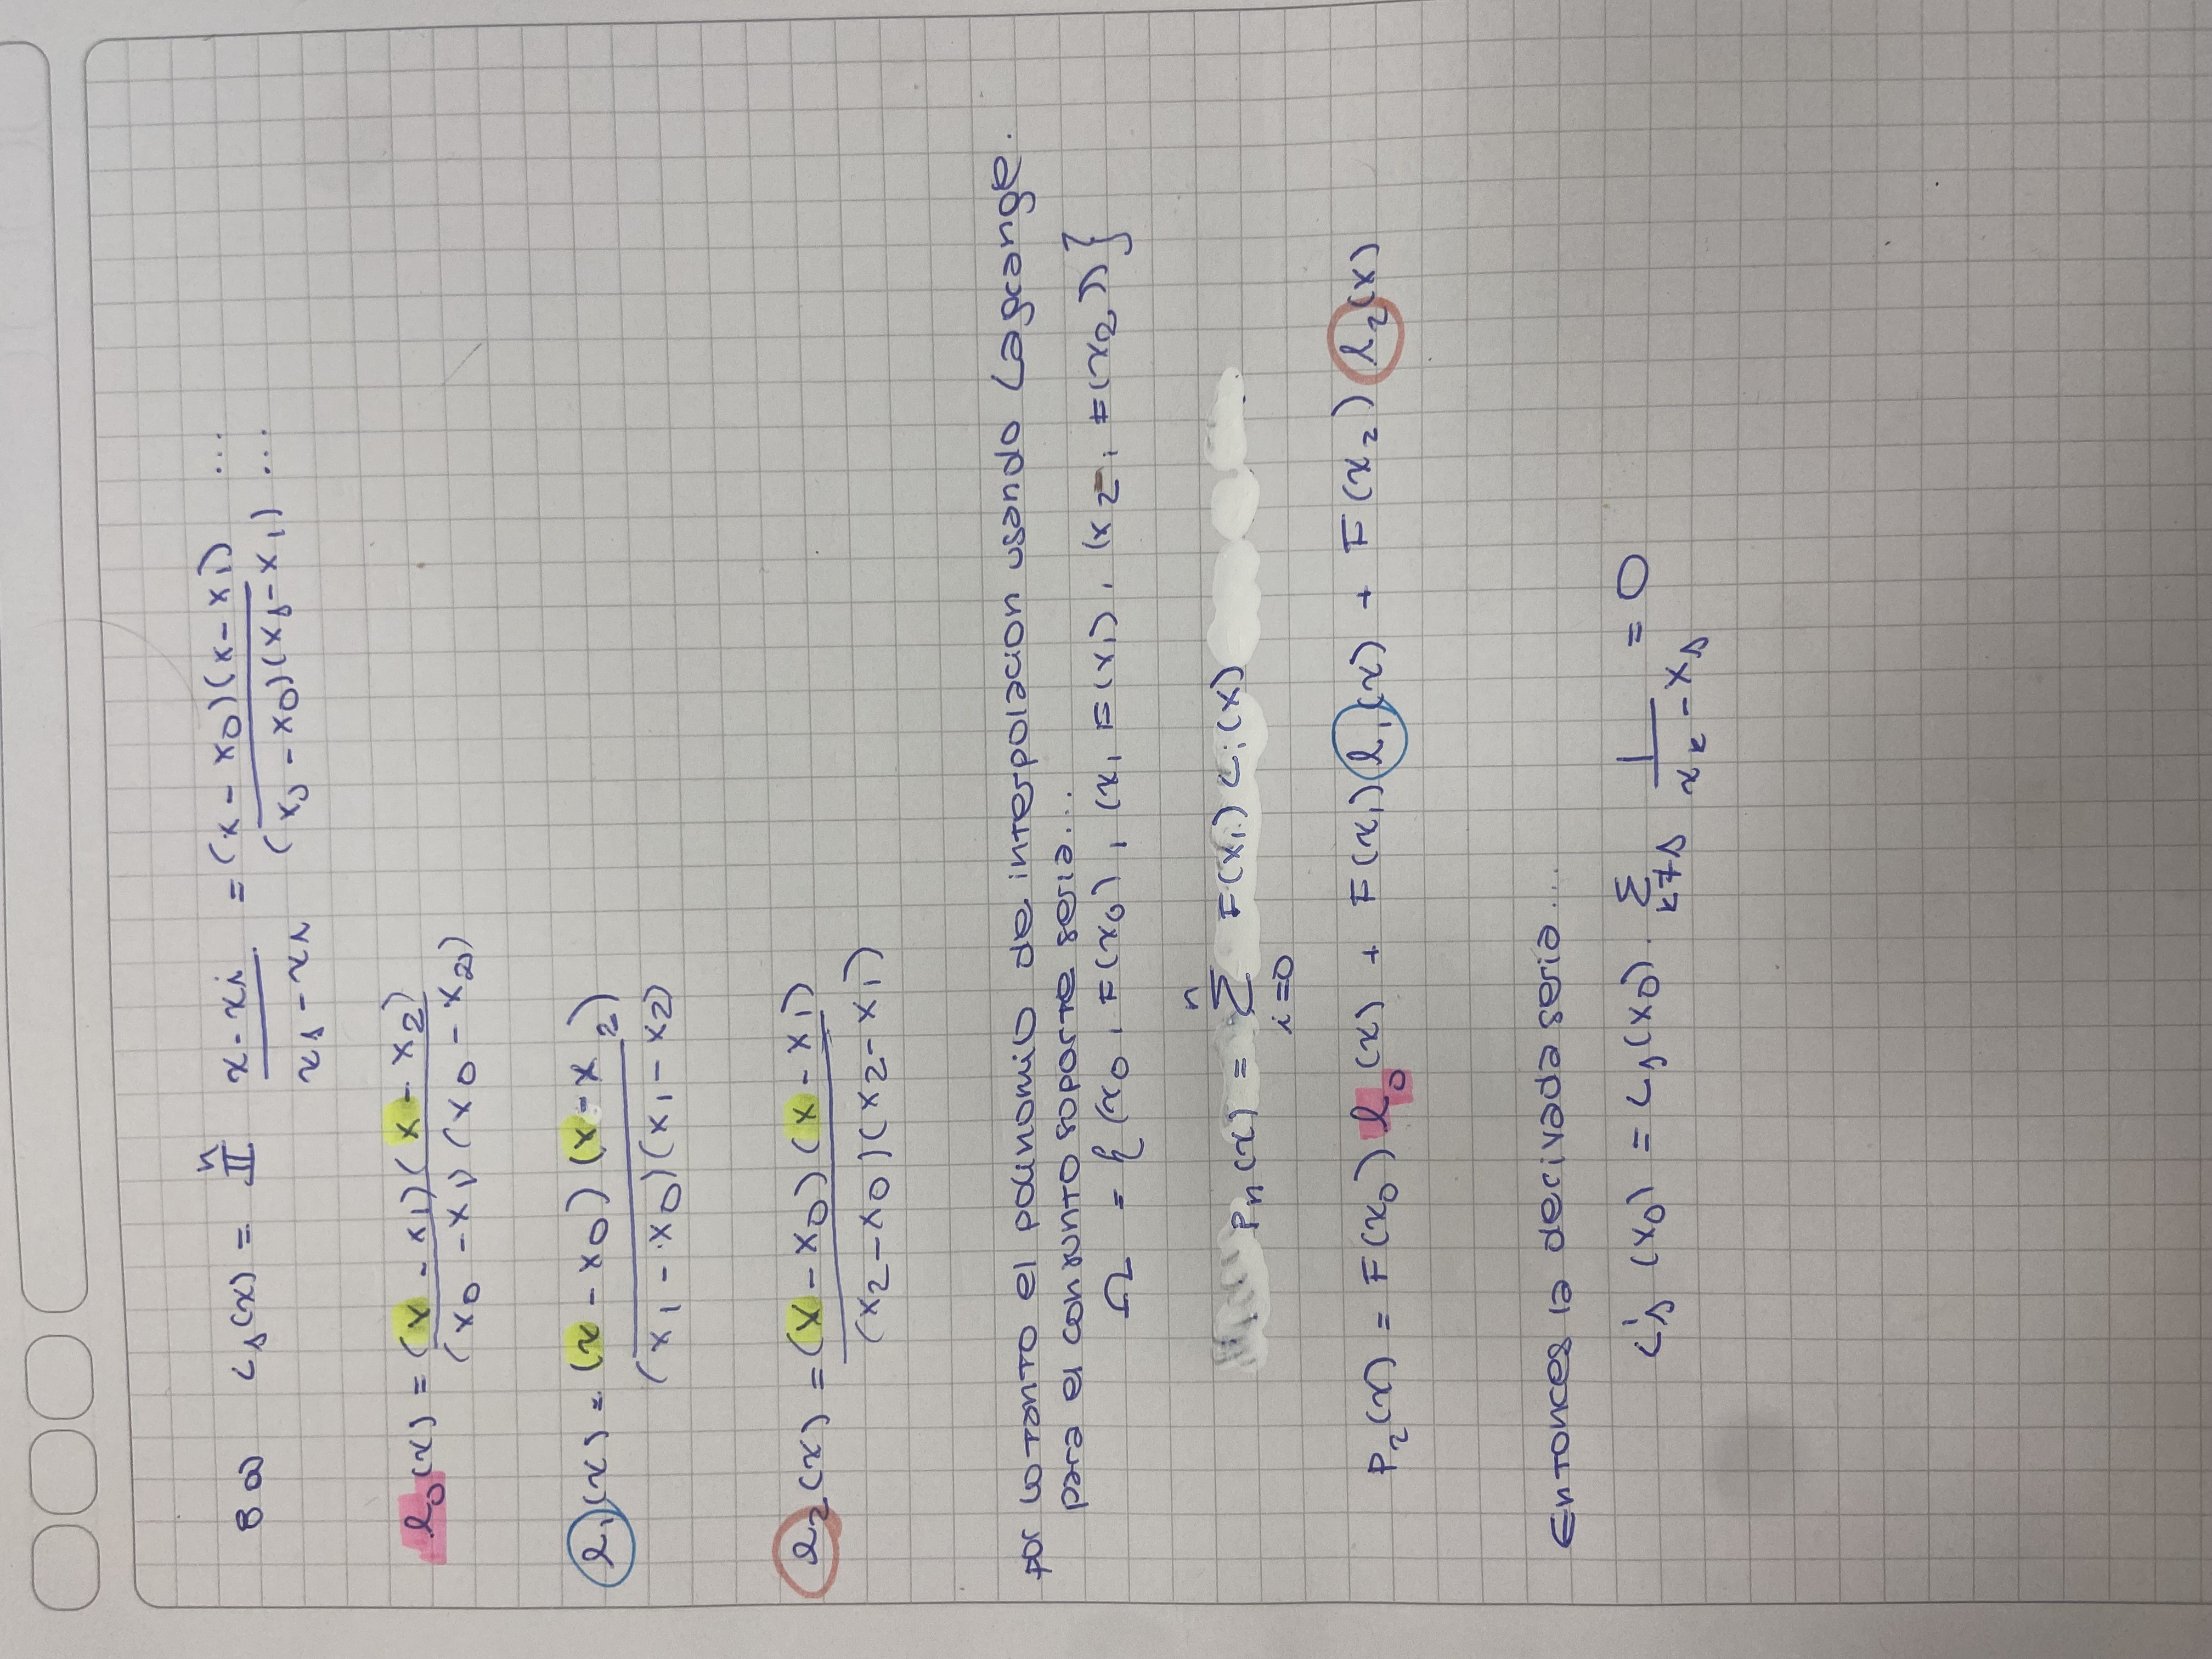 B(x) L_j(x) = ∏^n (x - x_i)/(x_j - x_i) = (x - x_0)(x - x_1) ... / (x_j - x_0)(x_j - x_1) ...
l_0(x) = (x - x_1)(x - x_2) / (x_0 - x_1)(x_0 - x_2)
l_1(x) = (x - x_0)(x - x_2) / (x_1 - x_0)(x_1 - x_2)
l_2(x) = (x - x_0)(x - x_1) / (x_2 - x_0)(x_2 - x_1)
por lo tanto el polinomio de interpolacion usando Lagrange.
para el conjunto soporte seria...
Ω = {(x_0, F(x_0), (x_1 F(x_1), (x_2, F(x_2))}
P_n(x) = Σ_{i=0}^n F(x_i) L_i(x)
P_2(x) = F(x_0) l_0(x) + F(x_1) l_1(x) + F(x_2) l_2(x)
Entonces la derivada seria...
L'_j(x_0) = L_j(x_0) · Σ_{k≠j} 1/(x_k - x_j) = 0